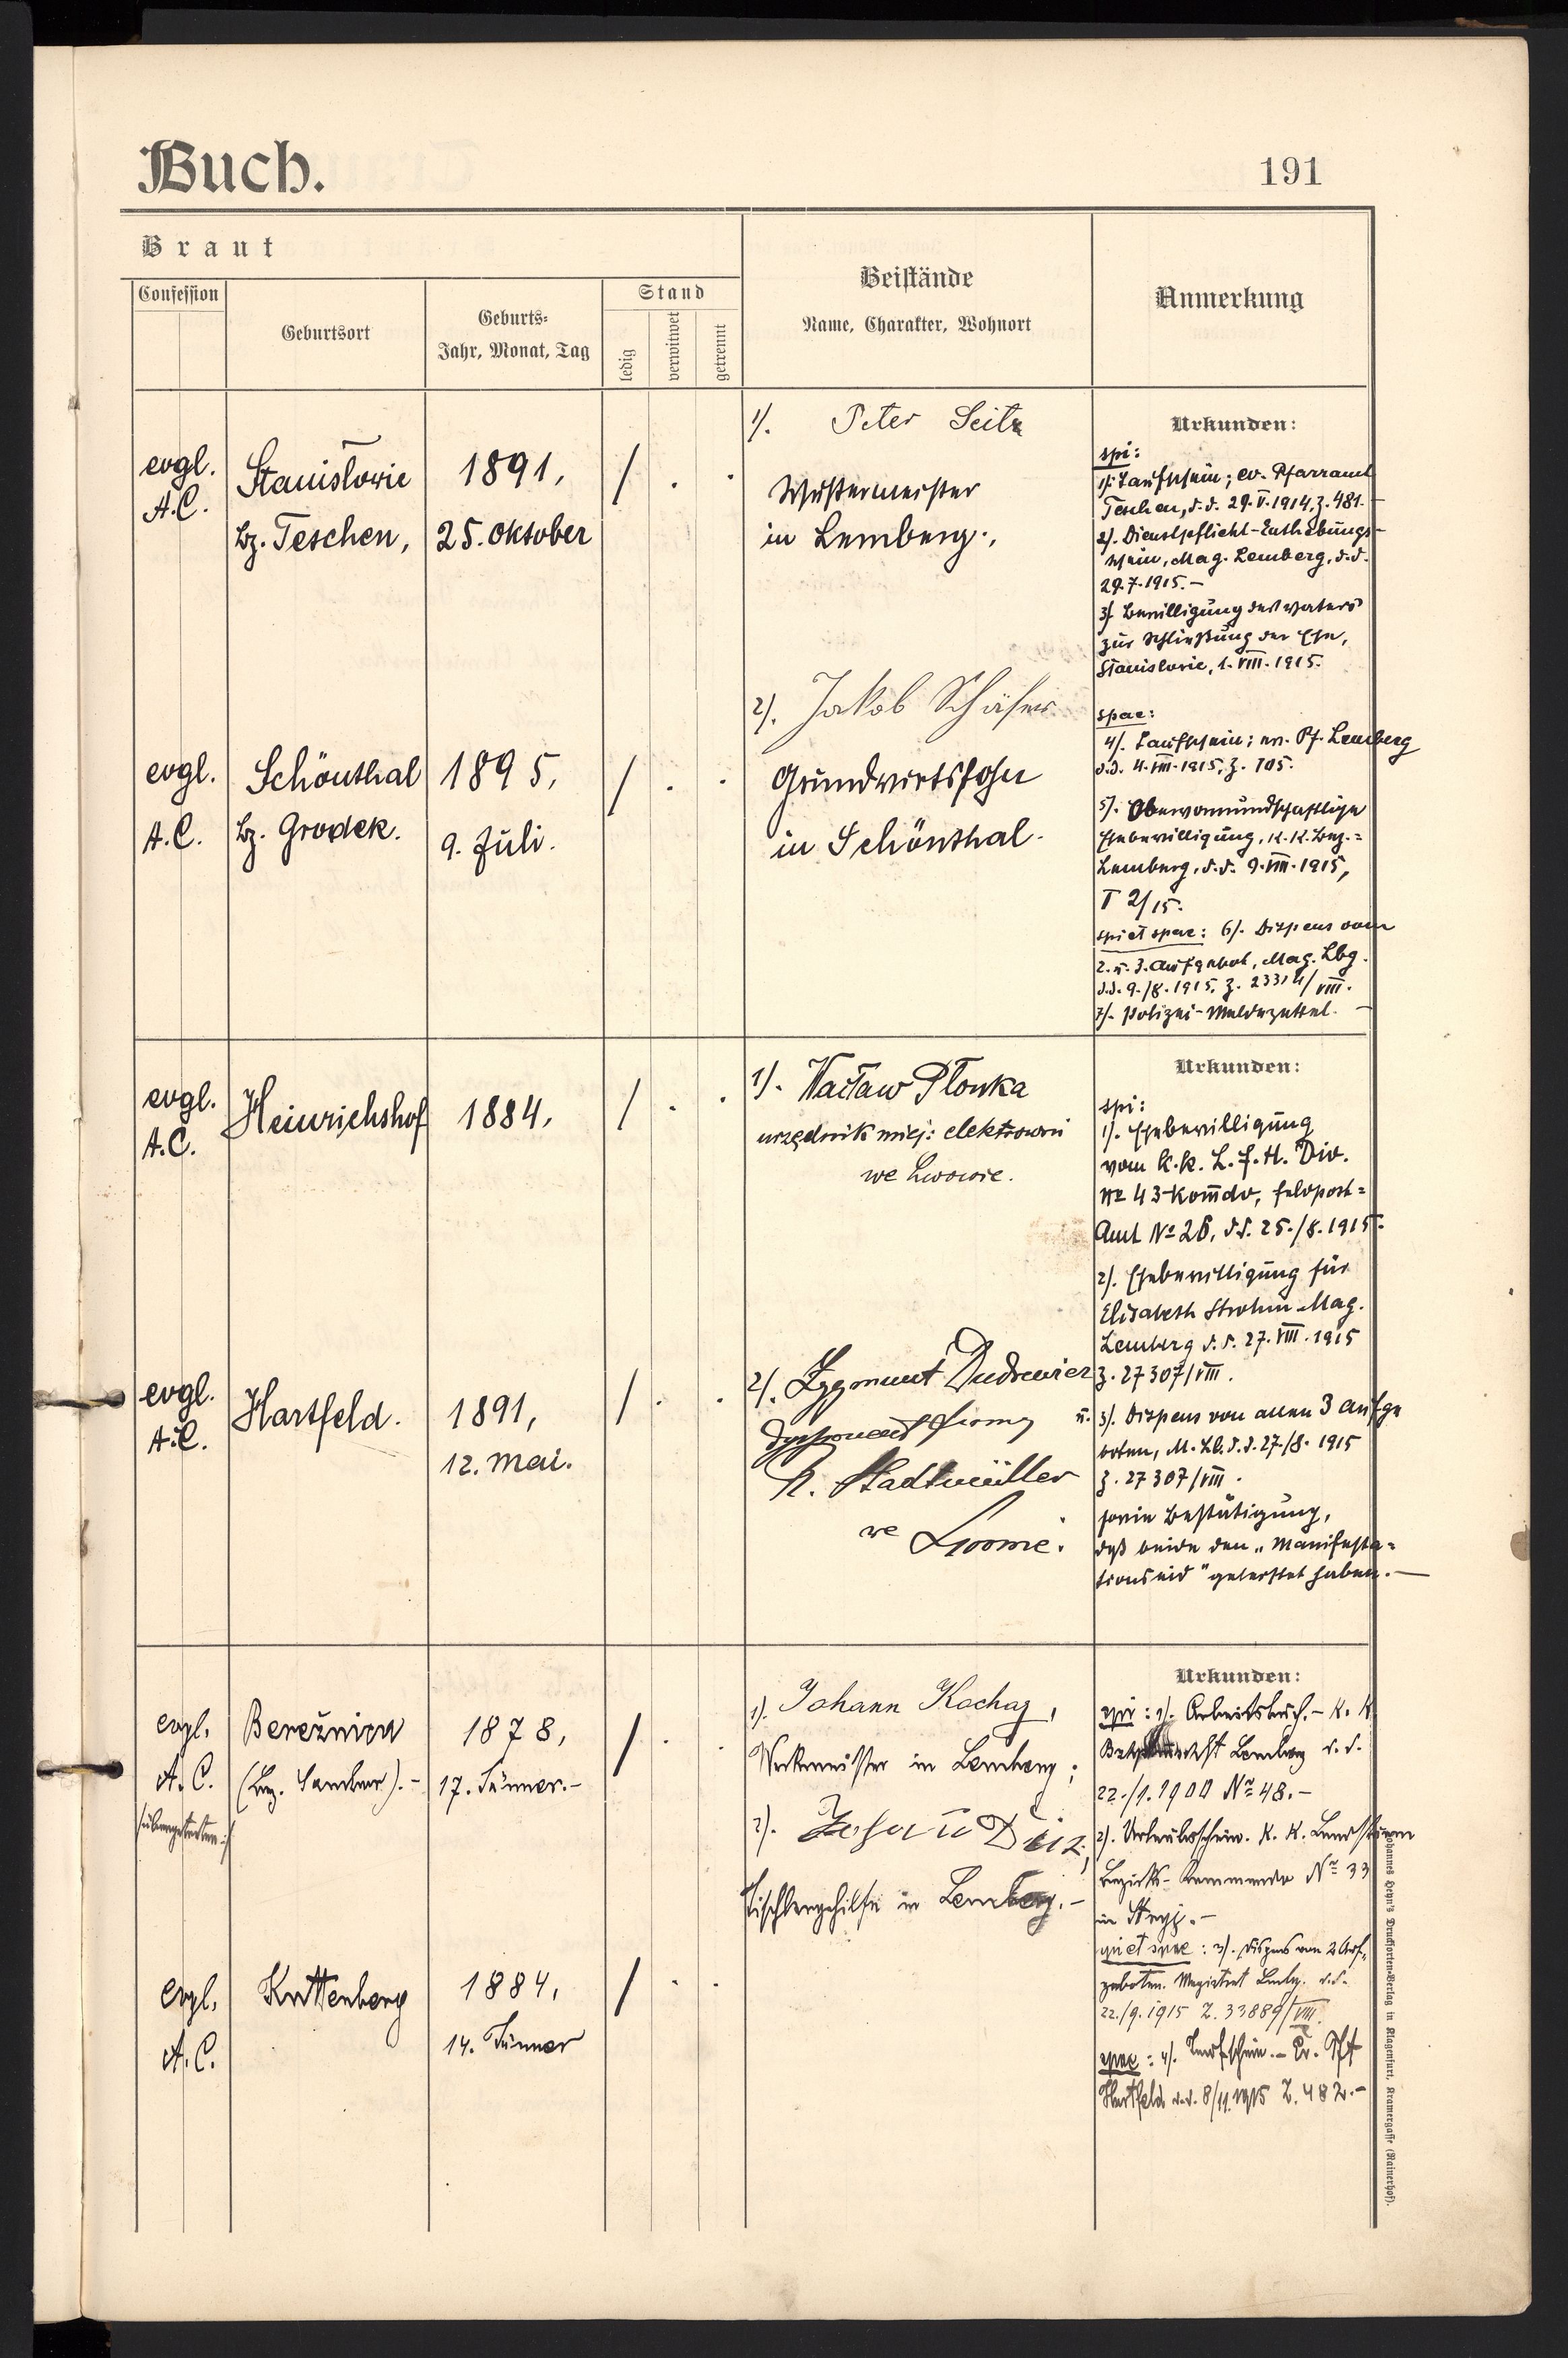 Buch.
191
Braut
Confession
Geburtsort
Geburts-
Jahr, Monat, Tag
Stand
ledig
verwitwet
getrennt
Beistände
Name, Charakter, Wohnort
Anmerkung
evgl.
A.C.
Stanislowie
Bz. Teschen,
1891,
25. Oktober
/ . .
1/. Peter Seitz
in Lemberg.,
Urkunden:
spi:
1/. Taufschein; ev. Pfarramt
Teschen, d.d. 29.V.1914, z. 481.-
2/. Dienstpflicht-Enthebungs-
schein, Mag. Lemberg, d.d.
29.7.1915.-
3/. Bewilligung des Vaters
zur Schließung der Ehe,
Stanislowie, 1.VIII.1915.
evgl.
A.C.
Schönthal
Bz. Grodek.
1895,
9. Juli.
/ . .
2/. Jakob Schäfer
Grundwirtssohn
in Schönthal.
spae:
4/. Taufschein; ev. Pf. Lemberg
d.d. 4.VIII.1915, z. 705.
5/. Obervormundschaftliche
Ehebewilligung, K.K. Bez.=
Lemberg, d.d. 9.VIII.1915,
T 2/15.
spi et spae: 6/. Dispens vom
2. u. 3. Aufgebot, Mag. Lbg.
d.d. 9./8.1915, z. 23314/VIII.
7/. Polizei-Meldezettel. -
evgl.
A.C.
Heinrichshof
1884,
/ . .
1/. Wacław Płonka
urzędnik miej: elektrowni
we Lwowie.
Urkunden:
spi:
1/. Ehebewilligung
vom K.K. L.F.H. Div.
No 43-Komdo, Feldpost=
Amt No 26, d.d. 25./8.1915.
2/. Ehebewilligung für
Elisabeth Strohm Mag.
Lemberg d.d. 27.VIII.1915
z. 27307/VIII.
evgl.
A.C.
Hartfeld.
1891,
12. Mai.
/ . .
2/. Zygmunt
dysponent firmy
Stadtmüller
we Lwowie.
u. 3/. Dispens von allen 3 Aufge
boten, M. Lb. d.d. 27./8.1915
z. 27307/VIII.
sowie Bestätigung,
daß beide den „Manifesta=
tionseid" geleistet haben.-
evgl.
A.C.
/übergetreten./
Berežnica
(Bez. Sambor).-
1878,
17. Jänner.-
/ . .
1/. Johann Kochaz,
Werkmeister in Lemberg;
2/.
Tischlergehilfe in Lemberg.-
Urkunden:
spi: 1/. Arbeitsbuch.- K.K.
Lemberg d.d.
22./1.1900 No 48.-
2/. Urlaubsschein. K.K. Landsturm
Bezirks-Kommando No 33
in Stryj.-
spi et spae: 3/. Dispens von 2 Auf-
geboten. Magistrat Lemberg. d.d.
22./9.1915 Z. 33889/VIII.
evgl.
A.C.
Kuttenberg
1884,
14. Jänner
/ . .
spae: 4/. Taufschein.- Ev. Pft
Hartfeld d.d. 8/11.1915 Z. 482.-
Johannes Heyn's Drucksorten-Verlag in Klagenfurt, Kramergasse (Rainerhof).